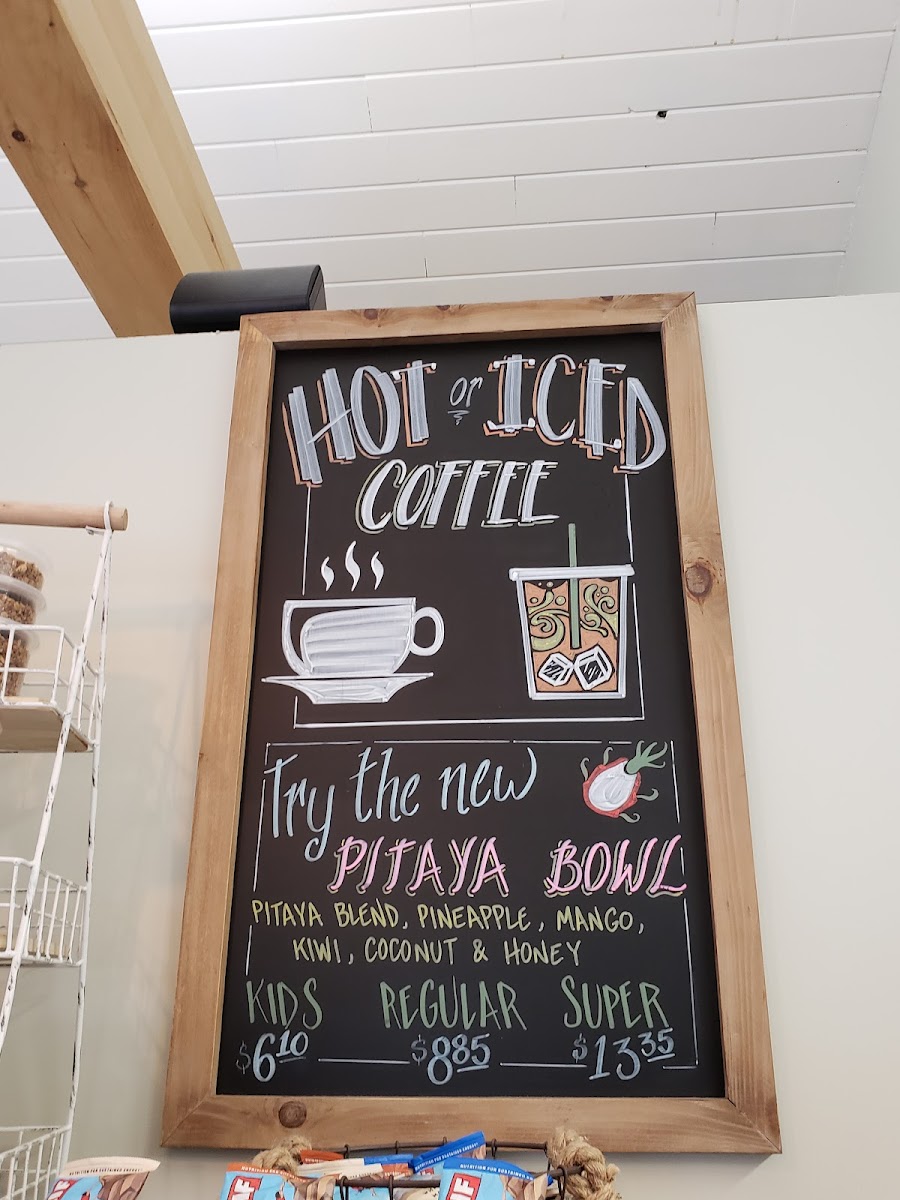 HOT or ICED
COFFEE
Try the new
PITAYA BOWL
PITAYA BLEND, PINEAPPLE, MANGO,
KIWI, COCONUT & HONEY
KIDS REGULAR SUPER
$6.10 $8.85 $13.35
NUTRITION FOR SUSTAINED ENERGY